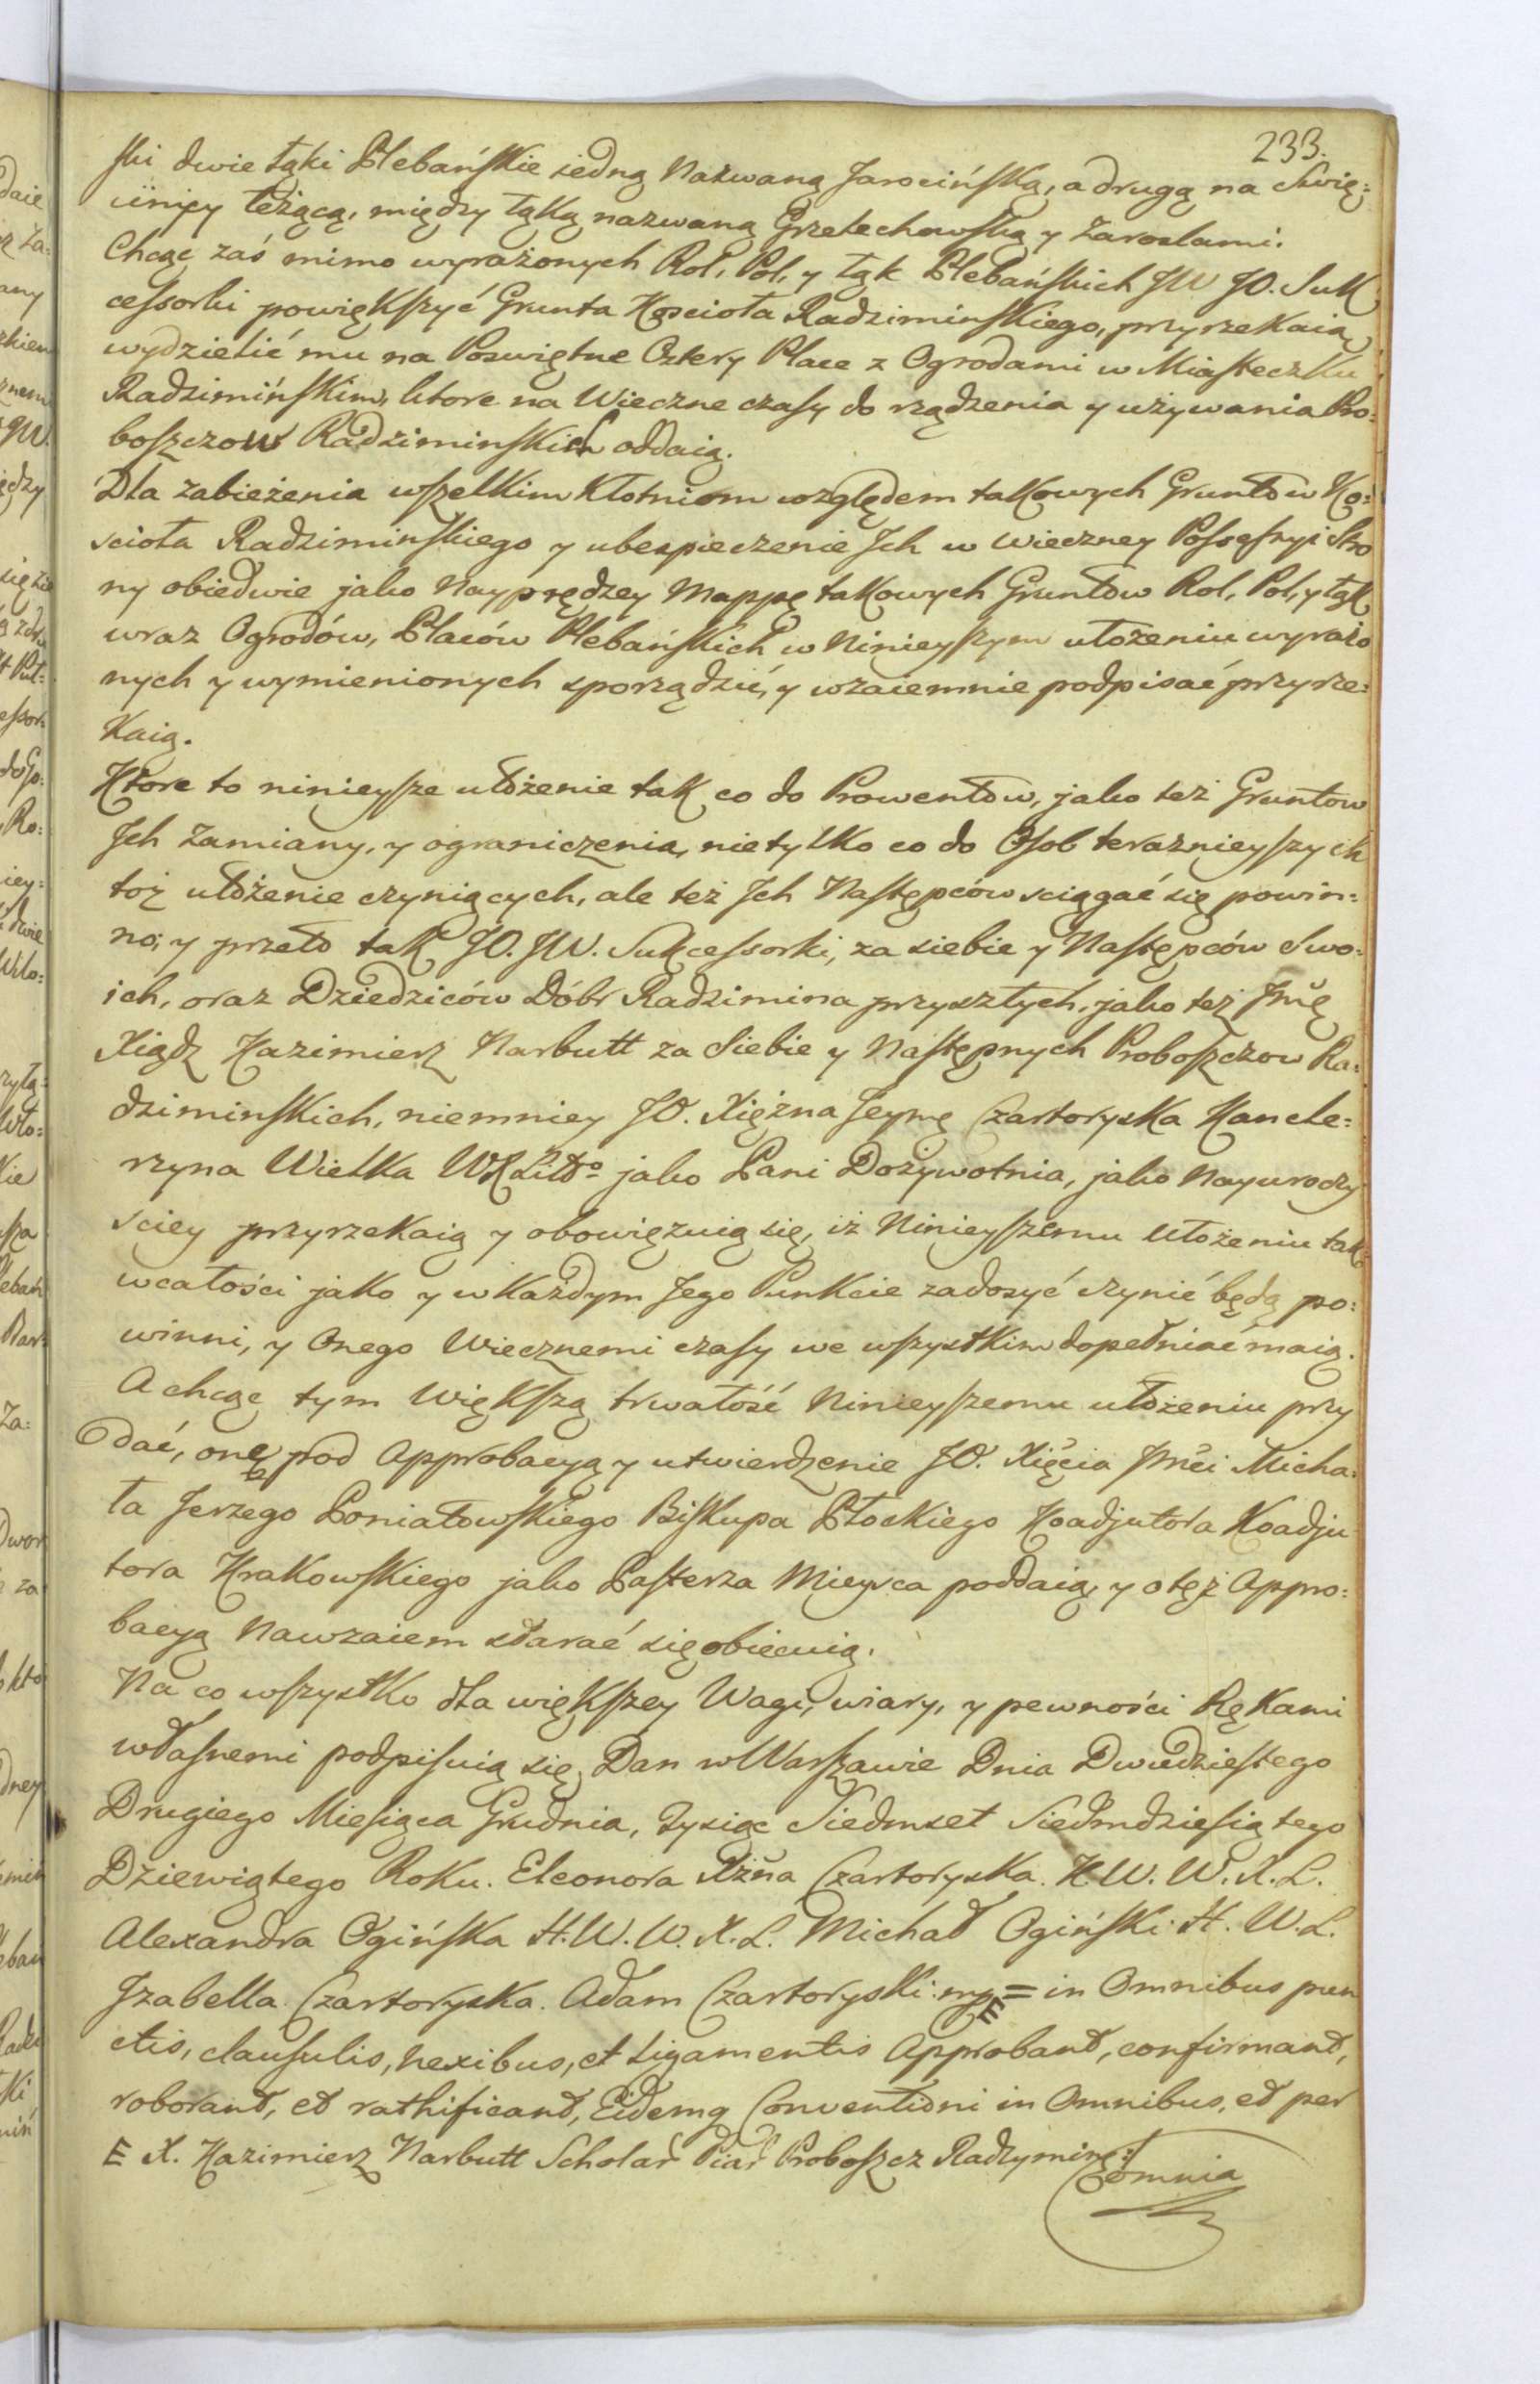 233.
ski dwie łąki Plebańskie iedną Nazwaną Jarocińską, a drugą na Swię:
ciincy leżącą, między łąką nazwaną Grzelechowską y Zaroslami.
Chcąc zaś mimo wyrażonych Rol, Pol, y łąk Plebańskich JW JO. Suk
cessorki powiększyć Grunta Kościoła Radziminskiego, przyrzekaią
wydzielić mu na Poswiętne Cztery Place z Ogrodami w Miasteczku
Radzimińskim, ktore na Wieczne czasy do rządzenia y używania Pro:
boszczow Radziminskich oddaią.
Dla zabieżenia wszelkim Kłotniom względem takowych Gruntow Ko:
scioła Radziminskiego y ubezpieczenie Jch w wieczney Possessyi Stro
ny obiedwie jako Nayprędzey Mappę takowych Gruntow Rol, Pol, y łąk
wraz Ogrodów, Placów Plebańskich w Ninieyszym ułożeniu wyrażo
nych y wymienionych sporządzić, y wzaiemnie podpisać przyrze:
kaią.
Ktore to ninieysze ułożenie tak co do Prowentow, jako też Gruntow
Jch Zamiany, y ograniczenia, nietylko co do Osob teraznieyszych
toż ułożenie czyniących, ale też Jch Następców sciągać się powin:
no; y przeto tak JO. JW. Sukcessorki, za siebie y Następców Swo:
ich, oraz Dziedziców Dóbr Radzimina przyszłych, jako też Jmć
Xiądz Kazimierz Narbutt za Siebie y Następnych Proboszczow Ra:
dziminskich, niemniey JO. Xiężna Jeymć Czartoryska Kancle:
rzyna Wielka WXLitto jako Pani Dożywotnia, jako Nayuroczy
sciey przyrzekaią y obowięzuią się, iż Ninieyszemu Ułożeniu tak
wcałości jako y w każdym Jego Punkcie zadosyć czynić będą po:
winni, y Onego Wiecznemi czasy we wszystkim dopełniać maią.
A chcąc tym większą trwałość Ninieyszemu ułożeniu przy
dać, one pod Approbacyą y utwierdzenie JO. Xięcia Jmći Micha:
ła Jerzego Poniatowskiego Biskupa Płockiego Koadjutora Koadju
tora Krakowskiego jako Pasterza Mieysca poddaią, y o tęż Appro:
bacyą Nawzaiem starać się obiecuią.
Na co wszystko dla większey Wagi, wiary, y pewności Rękami
własnemi podpisuią się. Dan w Warszawie Dnia Dwudziestego
Drugiego Miesiąca Grudnia, Tysiąc Siedmset Siedmdziesiątego
Dziewiątego Roku. Eleonora Xżna Czartoryska. K. W. W. X. L.
Alexandra Ogińska H. W. W. X. L. Michał Ogiński H. W. L.
Jzabella Czartoryska. Adam Czartoryski mp E = in Omnibus pun
ctis, clausulis, nexibus, et Ligamentis Approbant, confirmant,
roborant, et rathificant, Eidemq Conventioni in Omnibus, et per
E X. Kazimierz Narbutt Scholar Piar Proboszcz Radzymins:
omnia